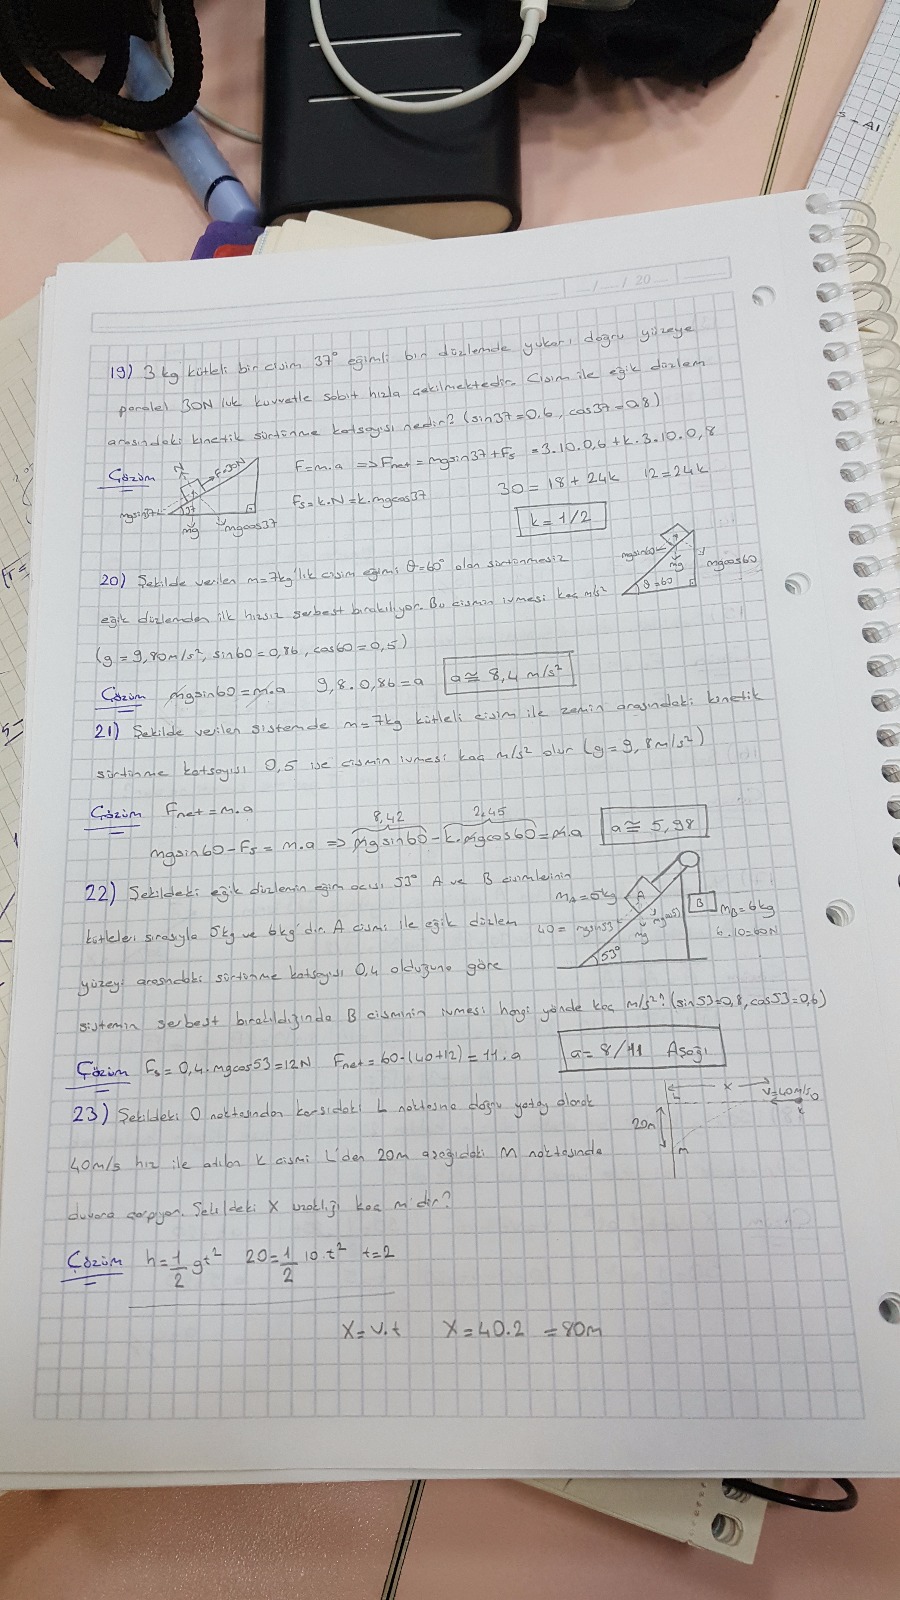 __/__/20__
S-A1
19) 3 kg kütleli bir cisim 37° eğimli bir düzlemde yukarı doğru yüzeye
paralel 30N luk kuvvetle sabit hızla çekilmektedir. Cisim ile eğik düzlem
arasındaki kinetik sürtünme katsayısı nedir? (sin37=0.6, cos37=0.8)
Çözüm
N
F=30N
37
mgsin37
mg
mgcos37
F=m.a => Fnet = mgsin37+Fs = 3.10.0,6+k.3.10.0,8
Fs=k.N=k.mgcos37
30=18+24k 12=24k
k=1/2
20) Şekilde verilen m=7kg'lik cisim eğimi θ=60° olan sürtünmesiz
eğik düzlemden ilk hızsız serbest bırakılıyor. Bu cismin ivmesi kaç m/s²
(g=9,80m/s², sin60=0,86, cos60=0,5)
mgsin60
mg
mgcos60
θ=60
Çözüm mgsin60=m.a 9,8.0,86=a a≅8,4 m/s²
21) Şekilde verilen sistemde m=7kg kütleli cisim ile zemin arasındaki kinetik
sürtünme katsayısı 0,5 ise cismin ivmesi kaç m/s² olur (g=9,8m/s²)
Çözüm Fnet=m.a
8,42 2,45
mgsin60-Fs=m.a => mgsin60-k.mgcos60=m.a a≅5,98
22) Şekildeki eğik düzlemin eğim açısı 53° A ve B cisimlerinin
kütleleri sırasıyla 5kg ve 6kg'dır. A cismi ile eğik düzlem
yüzeyi arasındaki sürtünme katsayısı 0,4 olduğuna göre
sistemin serbest bırakıldığında B cisminin ivmesi hangi yönde kaç m/s²? (sin53=0,8, cos53=0,6)
mA=5kg
A
B
mB=6kg
6.10=60N
40=mgsin53
mg
mgcos53
53°
Çözüm Fs=0,4.mgcos53=12N Fnet=60-(40+12)=11.a a=8/11 Aşağı
23) Şekildeki O noktasından karşıdaki L noktasına doğru yatay olarak
40m/s hız ile atılan K cismi L'den 20m aşağıdaki M noktasında
duvara çarpıyor. Şekildeki X uzaklığı kaç m'dir?
X
L
V=40m/s
O
K
20m
M
Çözüm h=1/2 gt² 20=1/2 10.t² t=2
X=V.t X=40.2 =80m